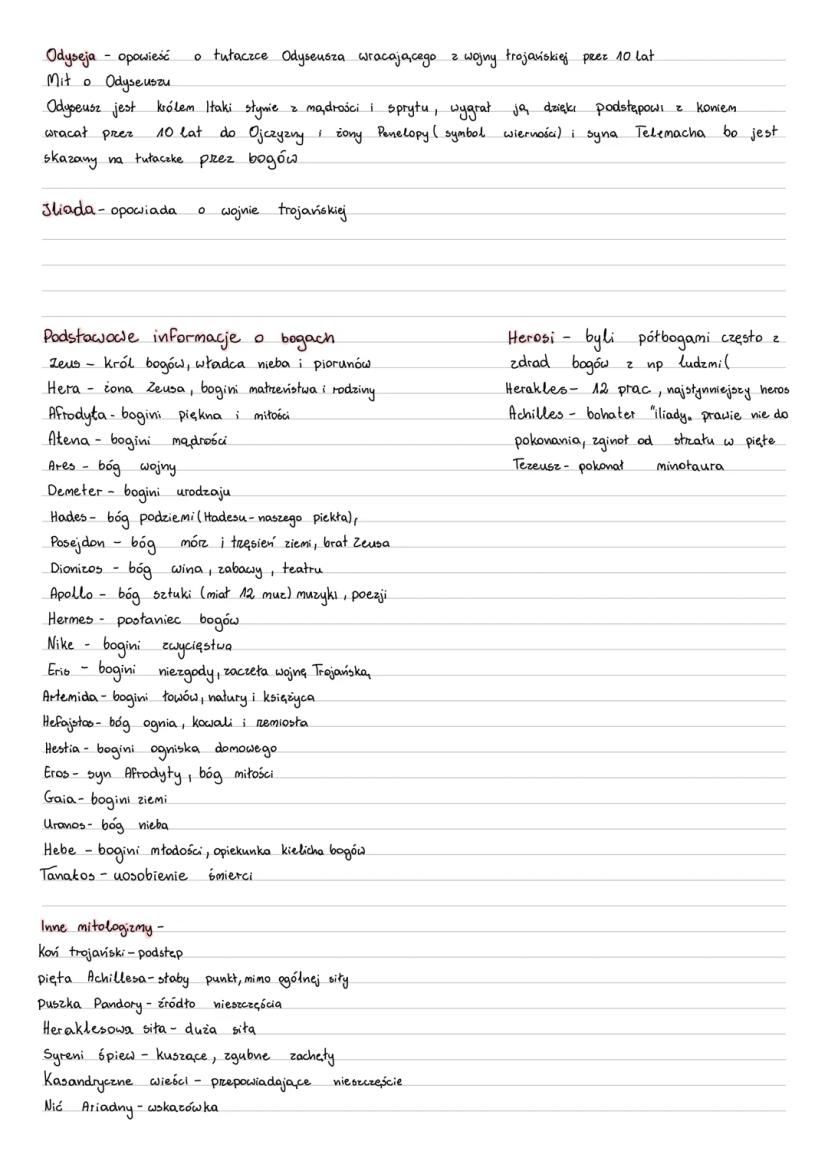 Odyseja - opowieść o tułaczce Odyseusza wracającego z wojny trojańskiej przez 10 lat
Mit o Odyseuszu
Odyseusz jest królem Itaki słynie z mądrości i sprytu, wygrał ją dzięki podstępowi z koniem
wracał przez 10 lat do Ojczyzny i żony Penelopy ( symbol wierności) i syna Telemacha bo jest
skazany na tułaczke przez bogów
Iliada - opowiada o wojnie trojańskiej
Podstawowe informacje o bogach
Zeus - król bogów, władca nieba i piorunów
Hera - żona Zeusa, bogini małżeństwa i rodziny
Afrodyta - bogini piękna i miłości
Atena - bogini mądrości
Ares - bóg wojny
Demeter - bogini urodzaju
Hades - bóg podziemi (Hadesu - naszego piekła),
Posejdon - bóg mórz i trzęsień ziemi, brat Zeusa
Dionizos - bóg wina, zabawy, teatru
Apollo - bóg sztuki (miał 12 muz) muzyki, poezji
Hermes - posłaniec bogów
Nike - bogini zwycięstwa
Eris - bogini niezgody, zaczeła wojnę Trojańską
Artemida - bogini łowów, natury i księżyca
Hefajstos - bóg ognia, kowali i rzemiosła
Hestia - bogini ogniska domowego
Eros - syn Afrodyty, bóg miłości
Gaia - bogini ziemi
Uranos - bóg nieba
Hebe - bogini młodości, opiekunka kielicha bogów
Tanatos - uosobienie śmierci
Herosi - byli półbogami często z
zdrad bogów z np ludzmi(
Herakles - 12 prac, najsłynniejszy heros
Achilles - bohater "iliady„ prawie nie do
pokonania, zginoł od strzału w pięte
Tezeusz - pokonał minotaura
Inne mitologizmy -
Koń trojański - podstęp
pięta Achillesa - słaby punkt, mimo ogólnej siły
puszka Pandory - źródło nieszczęścia
Heraklesowa siła - duża siła
Syreni śpiew - kuszące, zgubne zachęty
Kasandryczne wieści - przepowiadające nieszczęście
Nić Ariadny - wskazówka